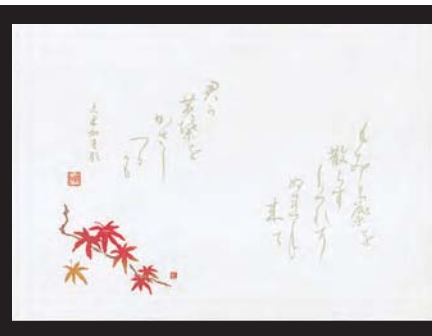 もみち葉を
散らす
しくれに
ぬれて
来て
君か
黄葉を
かさし
つる
かも